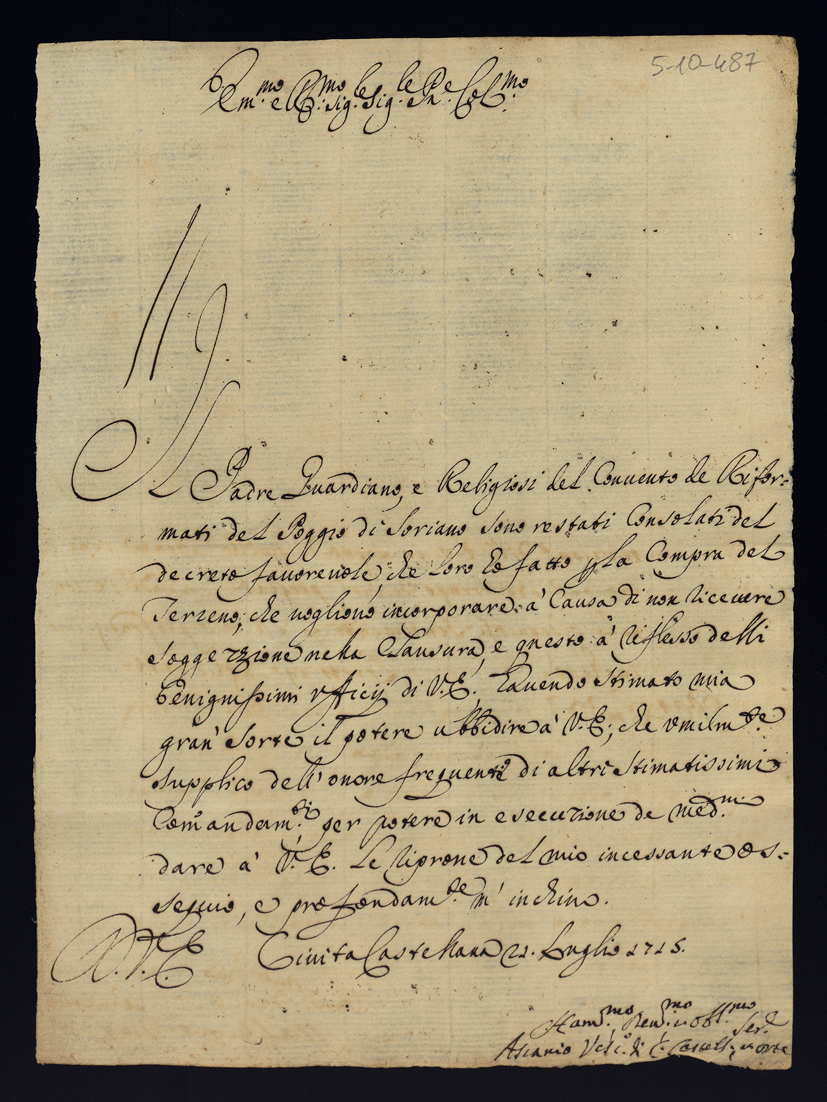 5-10-487
Em.mo e R.mo Sig.le Sig.le Pa.e Col.mo
Il Padre Guardiano, e Religiosi del Convento de Rifor=
mati del Poggio di Soriano sono restati Consolati del
decreto favorevole, che loro hò fatto p la Compra del
Terreno, che vogliono incorporare à Causa di non ricevere
soggezzione nella Clausura, e questo à riflesso delli
benignissimi ufficij di V.E. havendo stimato mia
gran' sorte il potere ubbidire à V.E; che umilm.te
supplico dell'onore frequente di altri stimatissimi
Comandam.ti per potere in esecuzione de med.mi
dare à V.E. le riprove del mio incessante os=
sequio, e profondam.te m' inchino.
D.V.E. Civita Castellana 21. Luglio 1715.
Hum.mo Dev.mo Obb.mo Ser.e
Ascanio Vesc.o di C. Castell.a e Orte